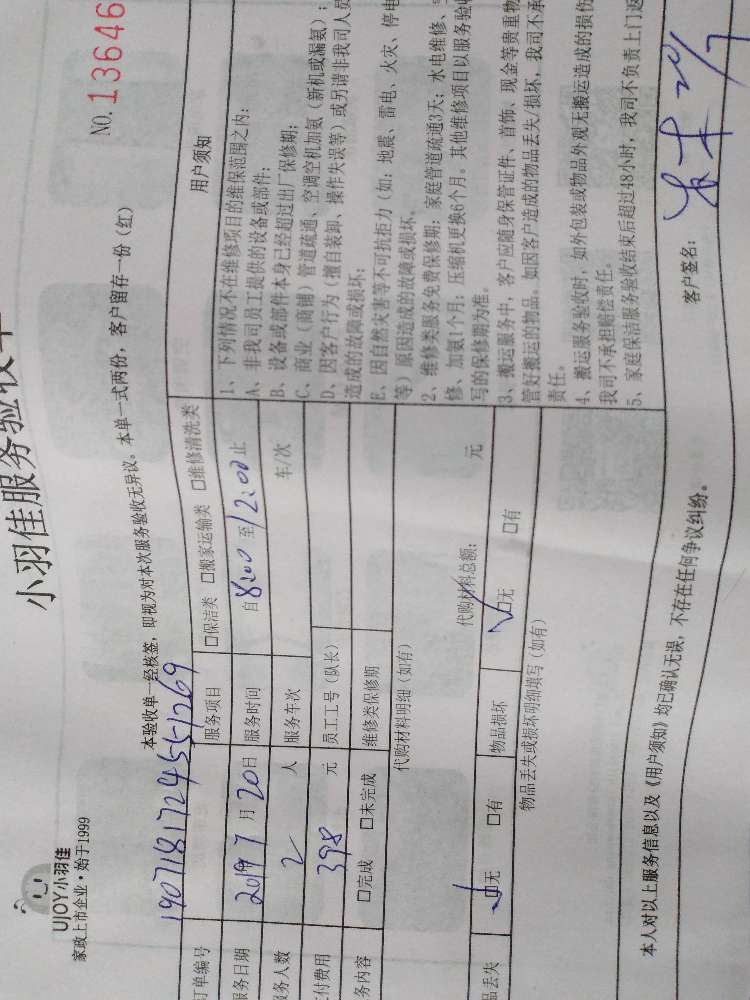 小羽佳服务验收单
UJOY小羽佳
家政上市企业·始于1999
NO.13646
本验收单一经核签，即视为对本次服务验收无异议。本单一式两份，客户留存一份（红）
订单编号 19071817245551269
服务项目 □保洁类 □搬家运输类 □维修清洗类
服务日期 2019 7 月 20 日 服务时间 自 8:00 至 12:00 止
服务人数 2 人 服务车次 车/次
支付费用 398 元 员工工号（队长）
服务内容 □完成 □未完成 维修类保修期
代购材料明细（如有）
代购材料总额： 元
物品丢失 ☑无 □有 物品损坏 ☑无 □有
物品丢失或损坏明细填写（如有）
用户须知
1、下列情况不在维修项目的维保范围之内：
A、非我司员工提供的设备或部件；
B、设备或部件本身已经超过出厂保修期；
C、商业（商铺）管道疏通、空调空机加氨（新机或漏氨）；
D、因客户行为（擅自装卸、操作失误等）或另请非我司人员
造成的故障或损坏；
E、因自然灾害等不可抗拒力（如：地震、雷电、火灾、停电
等）原因造成的故障或损坏。
2、维修类服务免费保修期：家庭管道疏通3天；水电维修、
修、加氨1个月；压缩机更换6个月。其他维修项目以服务验收
写的保修期为准。
3、搬运服务中，客户应随身保管证件、首饰、现金等贵重物
管好搬运的物品。如因客户造成的物品丢失/损坏，我司不承
责任。
4、搬运服务验收时，如外包装或物品外观无搬运造成的损伤
我司不承担赔偿责任。
5、家庭保洁服务验收结束后超过48小时，我司不负责上门返
本人对以上服务信息以及《用户须知》均已确认无误，不存在任何争议纠纷。
客户签名： 20/7